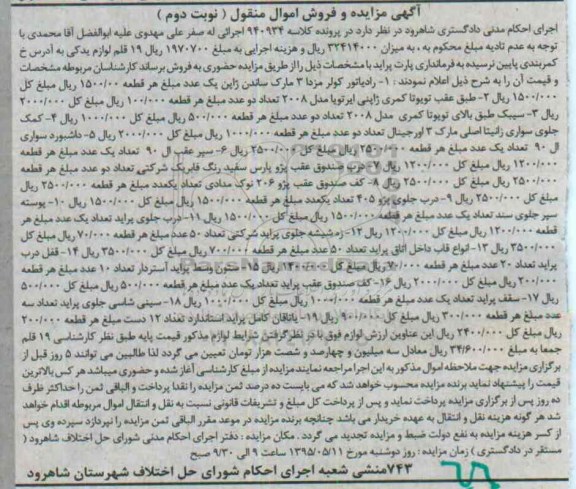 آگهی مزایده و فروش اموال منقول ( نوبت دوم )
اجرای احکام مدنی دادگستری شاهرود در نظر دارد در پرونده کلاسه ۹۴۰۹۳۴ اجرائی له صفر علی مهدوی علیه ابوالفضل آقا محمدی با
توجه به عدم تادیه مبلغ محکوم به ، به میزان ۳۲۴۱۴۰۰۰ ریال و هزینه اجرایی به مبلغ ۱۹۷۰۷۰۰ ریال ۱۹ قلم لوازم یدکی به آدرس خ
کمربندی پایین نرسیده به فرمانداری پارت پراید با مشخصات ذیل را از طریق مزایده حضوری به فروش برساند کارشناسان مربوطه مشخصات
و قیمت آن را به شرح ذیل اعلام نمودند : ۱- رادیاتور کولر مزدا ۳ مارک ساندن ژاپن یک عدد مبلغ هر قطعه ۱۵۰۰/۰۰۰ ریال مبلغ کل
۱۵۰۰/۰۰۰ ریال ۲- طبق عقب تویوتا کمری ژاپنی ایرتویا مدل ۲۰۰۸ تعداد دو عدد مبلغ هر قطعه ۱۰۰۰/۰۰۰ ریال مبلغ کل ۲۰۰۰/۰۰۰
ریال ۳- سیبک طبق بالای تویوتا کمری مدل ۲۰۰۸ تعداد دو عدد مبلغ هر قطعه ۵۰۰/۰۰۰ ریال مبلغ کل ۱۰۰۰/۰۰۰ ریال ۴- کمک
جلوی سواری زانتیا اصلی مارک ۳ اورجینال تعداد دو عدد مبلغ هر قطعه ۱۰۰۰/۰۰۰ ریال مبلغ کل ۲۰۰۰/۰۰۰ ریال ۵- داشبورد سواری
ال ۹۰ تعداد یک عدد مبلغ هر قطعه ۲۵۰۰/۰۰۰ ریال مبلغ کل ۲۵۰۰/۰۰۰ ریال ۶- سپر عقب ال ۹۰ تعداد یک عدد مبلغ هر قطعه
۱۲۰۰/۰۰۰ ریال مبلغ کل ۱۲۰۰/۰۰۰ ریال ۷- درب صندوق عقب پژو پارس سفید رنگ فابریک شرکتی تعداد دو عدد مبلغ هر قطعه
۲۵۰۰/۰۰۰ ریال مبلغ کل ۵۰۰۰/۰۰۰ ریال ۸- کف صندوق عقب پژو ۲۰۶ نوک مدادی تعداد یکعدد مبلغ هر قطعه ۲۵۰۰/۰۰۰ ریال
مبلغ کل ۲۵۰۰/۰۰۰ ریال ۹- درب جلوی پژو ۴۰۵ تعداد یکعدد مبلغ هر قطعه ۱۵۰۰/۰۰۰ ریال مبلغ کل ۱۵۰۰/۰۰۰ ریال ۱۰- پوسته
سپر جلوی سمند تعداد یک عدد مبلغ هر قطعه ۱۵۰۰/۰۰۰ ریال مبلغ کل ۱۵۰۰/۰۰۰ ریال ۱۱- درب جلوی پراید تعداد یک عدد مبلغ هر
قطعه ۱۲۰۰/۰۰۰ ریال مبلغ کل ۱۲۰۰/۰۰۰ ریال ۱۲- زه شیشه جلوی پراید شرکتی تعداد ۵۰ عدد مبلغ هر قطعه ۷۰/۰۰۰ ریال مبلغ کل
۳۵۰۰/۰۰۰ ریال ۱۳- انواع قاب داخل اتاق پراید تعداد ۵۰ عدد مبلغ هر قطعه ۷۰/۰۰۰ ریال مبلغ کل ۳۵۰۰/۰۰۰ ریال ۱۴- قفل درب
پراید تعداد ۲۰ عدد مبلغ هر قطعه ۷۰/۰۰۰ ریال مبلغ کل ریال ۱۵- ستون وسط پراید آستردار تعداد ۱۰ عدد مبلغ هر قطعه
۲۰۰/۰۰۰ ریال مبلغ کل ۲۰۰۰/۰۰۰ ریال ۱۶- کف صندوق عقب پراید تعداد یک عدد مبلغ هر قطعه ۵۰۰/۰۰۰ ریال مبلغ کل ۵۰۰/۰۰۰
ریال ۱۷- سقف پراید تعداد یک عدد مبلغ هر قطعه ۱۰۰۰/۰۰۰ ریال مبلغ کل ۱۰۰۰/۰۰۰ ریال ۱۸- سینی شاسی جلوی پراید تعداد سه
عدد مبلغ هر قطعه ۳۰۰/۰۰۰ ریال مبلغ کل ۹۰۰/۰۰۰ ریال ۱۹- یاتاقان کامل پراید استاندارد تعداد ۱۲ دست مبلغ هر قطعه ۲۰۰/۰۰۰
ریال مبلغ کل ۲۴۰۰/۰۰۰ ریال این عناوین ارزش لوازم فوق با در نظر گرفتن شرایط لوازم مذکور قیمت پایه طبق نظر کارشناسی ۱۹ قلم
جمعا به مبلغ ۳۴/۶۰۰/۰۰۰ ریال معادل سه میلیون و چهارصد و شصت هزار تومان تعیین می گردد لذا طالبین می توانند ۵ روز قبل از
برگزاری مزایده جهت ملاحظه اموال مذکور به این اجرا مراجعه نمایند مزایده از مبلغ کارشناسی آغاز شده و حضوری میباشد هر کس بالاترین
قیمت را پیشنهاد نماید برنده مزایده محسوب خواهد شد که می بایست ده درصد ثمن مزایده را نقدا پرداخت و الباقی ثمن را حداکثر ظرف
ده روز پس از برگزاری مزایده پرداخت نماید و پس از پرداخت کل مبلغ و تشریفات قانونی نسبت به نقل و انتقال اموال مربوطه اقدام خواهد
شد هر گونه هزینه نقل و انتقال به عهده خریدار می باشد چنانچه برنده مزایده در موعد مقرر الباقی ثمن مزایده را نپردازد سپرده وی پس
از کسر هزینه مزایده به نفع دولت ضبط و مزایده تجدید می گردد . مکان مزایده : دفتر اجرای احکام مدنی شورای حل اختلاف شاهرود (
مستقر در دادگستری ) زمان مزایده : روز دوشنبه مورخ ۱۳۹۵/۰۵/۱۱ ساعت ۹ الی ۹/۳۰ صبح
۷۴۳منشی شعبه اجرای احکام شورای حل اختلاف شهرستان شاهرود